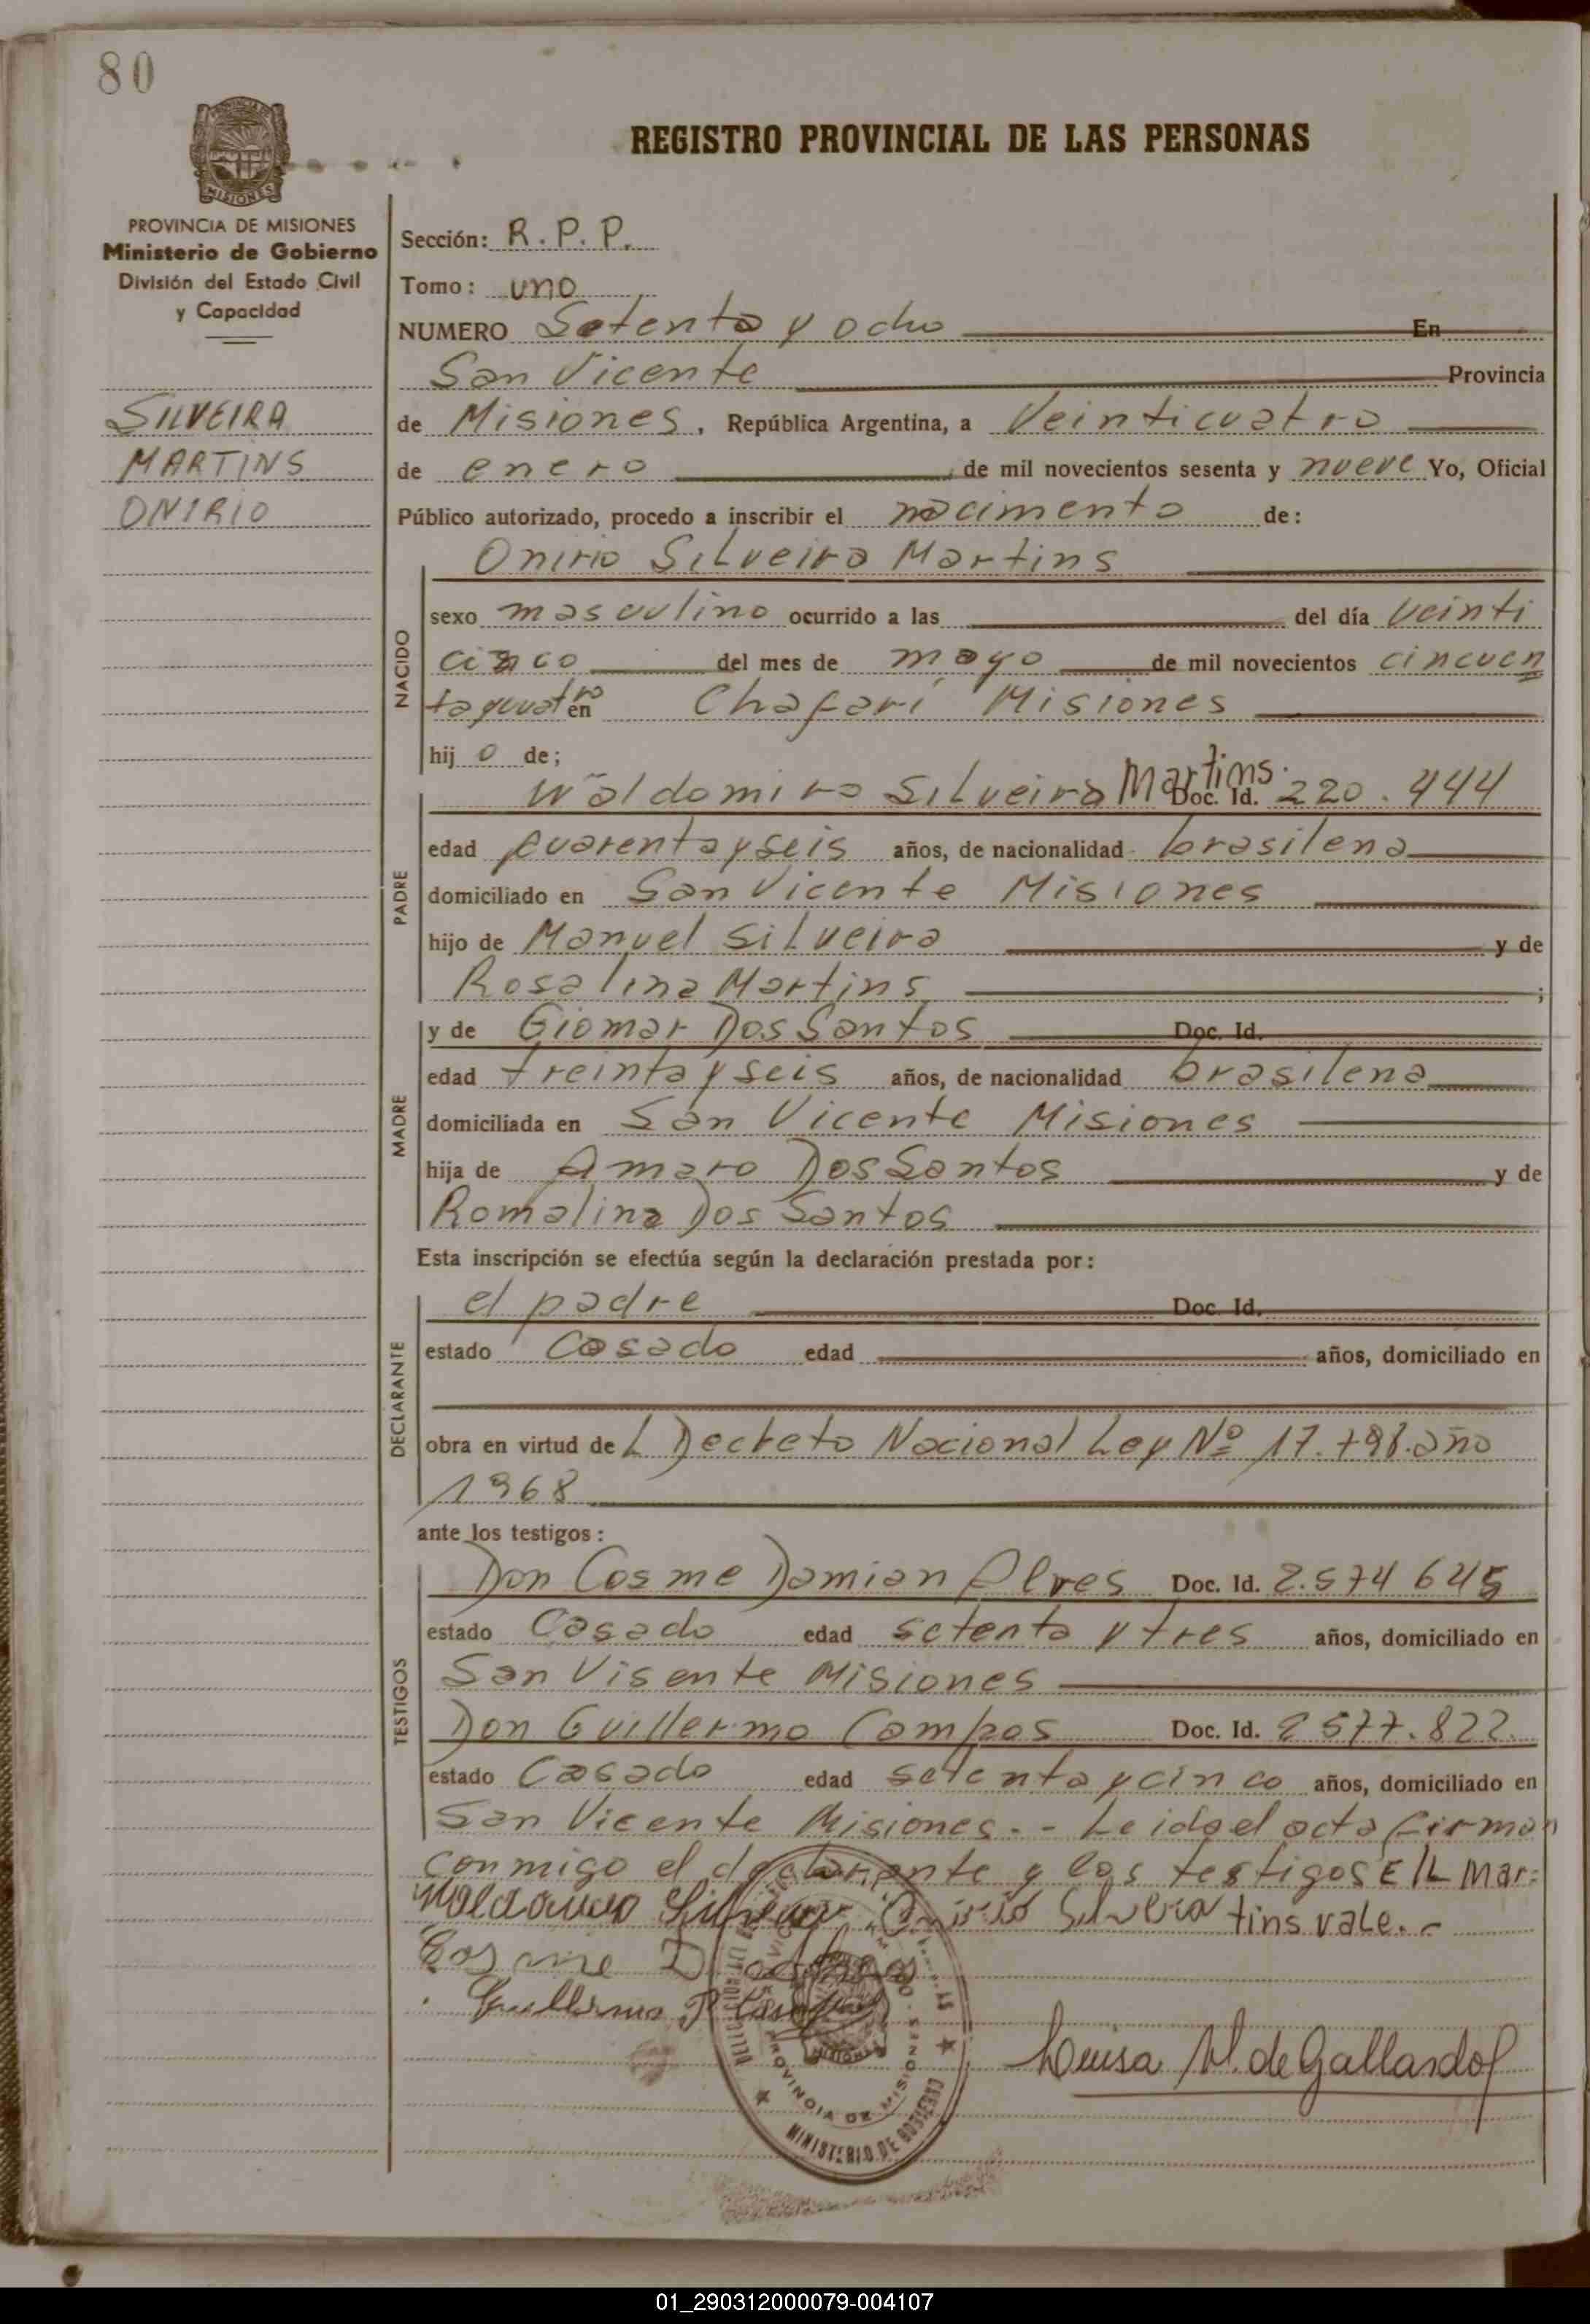 80
REGISTRO PROVINCIAL DE LAS PERSONAS
PROVINCIA DE MISIONES
Ministerio de Gobierno
División del Estado Civil
y Capacidad
SILVEIRA
MARTINS
ONIRIO
Sección: R.P.P.
Tomo: uno
NUMERO Setenta y ocho En
San Vicente Provincia
de Misiones, República Argentina, a Veinticuatro
de enero de mil novecientos sesenta y nueve Yo, Oficial
Público autorizado, procedo a inscribir el nacimento de:
Onirio Silveira Martins
NACIDO
sexo masculino ocurrido a las del día veinti
cinco del mes de mayo de mil novecientos cincuen
taycuatro en Chafarí Misiones
hijo de;
PADRE
Waldomiro Silveira Martins. Doc. Id. 220.444
edad cuarenta y seis años, de nacionalidad brasilena
domiciliado en San Vicente Misiones
hijo de Manuel Silveira y de
Rosalina Martins;
MADRE
y de Giomar Dos Santos Doc. Id.
edad treinta y seis años, de nacionalidad brasilena
domiciliada en San Vicente Misiones
hija de Amaro Dos Santos y de
Romalina Dos Santos
Esta inscripción se efectúa según la declaración prestada por:
DECLARANTE
el padre Doc. Id.
estado Casado edad años, domiciliado en
obra en virtud del Decreto Nacional Ley Nº 17.798.año
1968
ante los testigos:
TESTIGOS
Don Cosme Damian Alves Doc. Id. 2.574 645
estado Casado edad setenta y tres años, domiciliado en
San Visente Misiones
Don Guillermo Campos Doc. Id. 2577.822.
estado Casado edad setenta y cinco años, domiciliado en
San Vicente Misiones.- Leida el acta firman
conmigo el declarante y los testigos E/L Mar=
Waldomiro Silveira Onirio Silveira tins vale.-
Cosme D Alves
Guillermo R Campos
PROVINCIA DE MISIONES
MINISTERIO DE GOBIERNO
Luisa M. de Gallardo
01_290312000079-004107